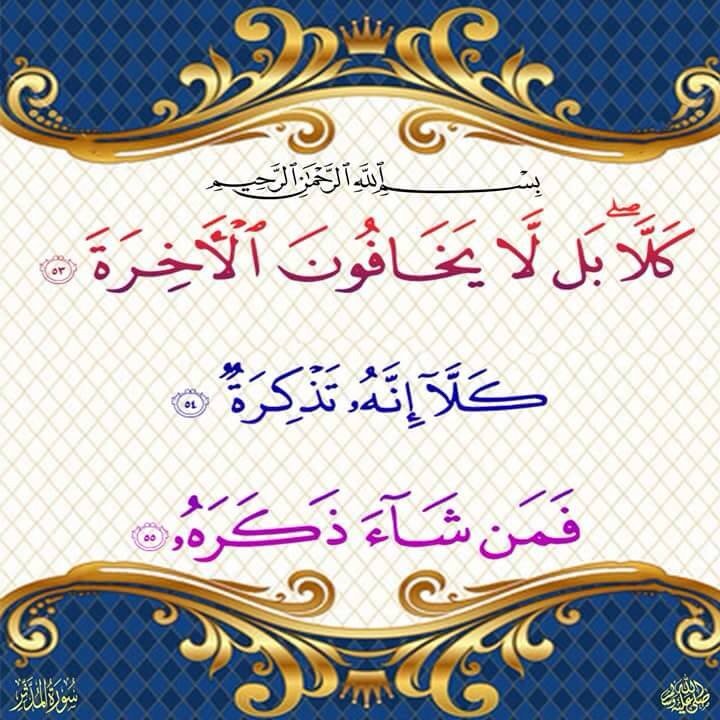 بِسْمِ ٱللَّهِ ٱلرَّحْمَٰنِ ٱلرَّحِيمِ
كَلَّاۖ بَل لَّا يَخَافُونَ ٱلْأَخِرَةَ ٥٣
كَلَّآ إِنَّهُۥ تَذْكِرَةٌ ٥٤
فَمَن شَآءَ ذَكَرَهُۥ ٥٥
سُورَةُ المُدَّثِّر
ﷺ